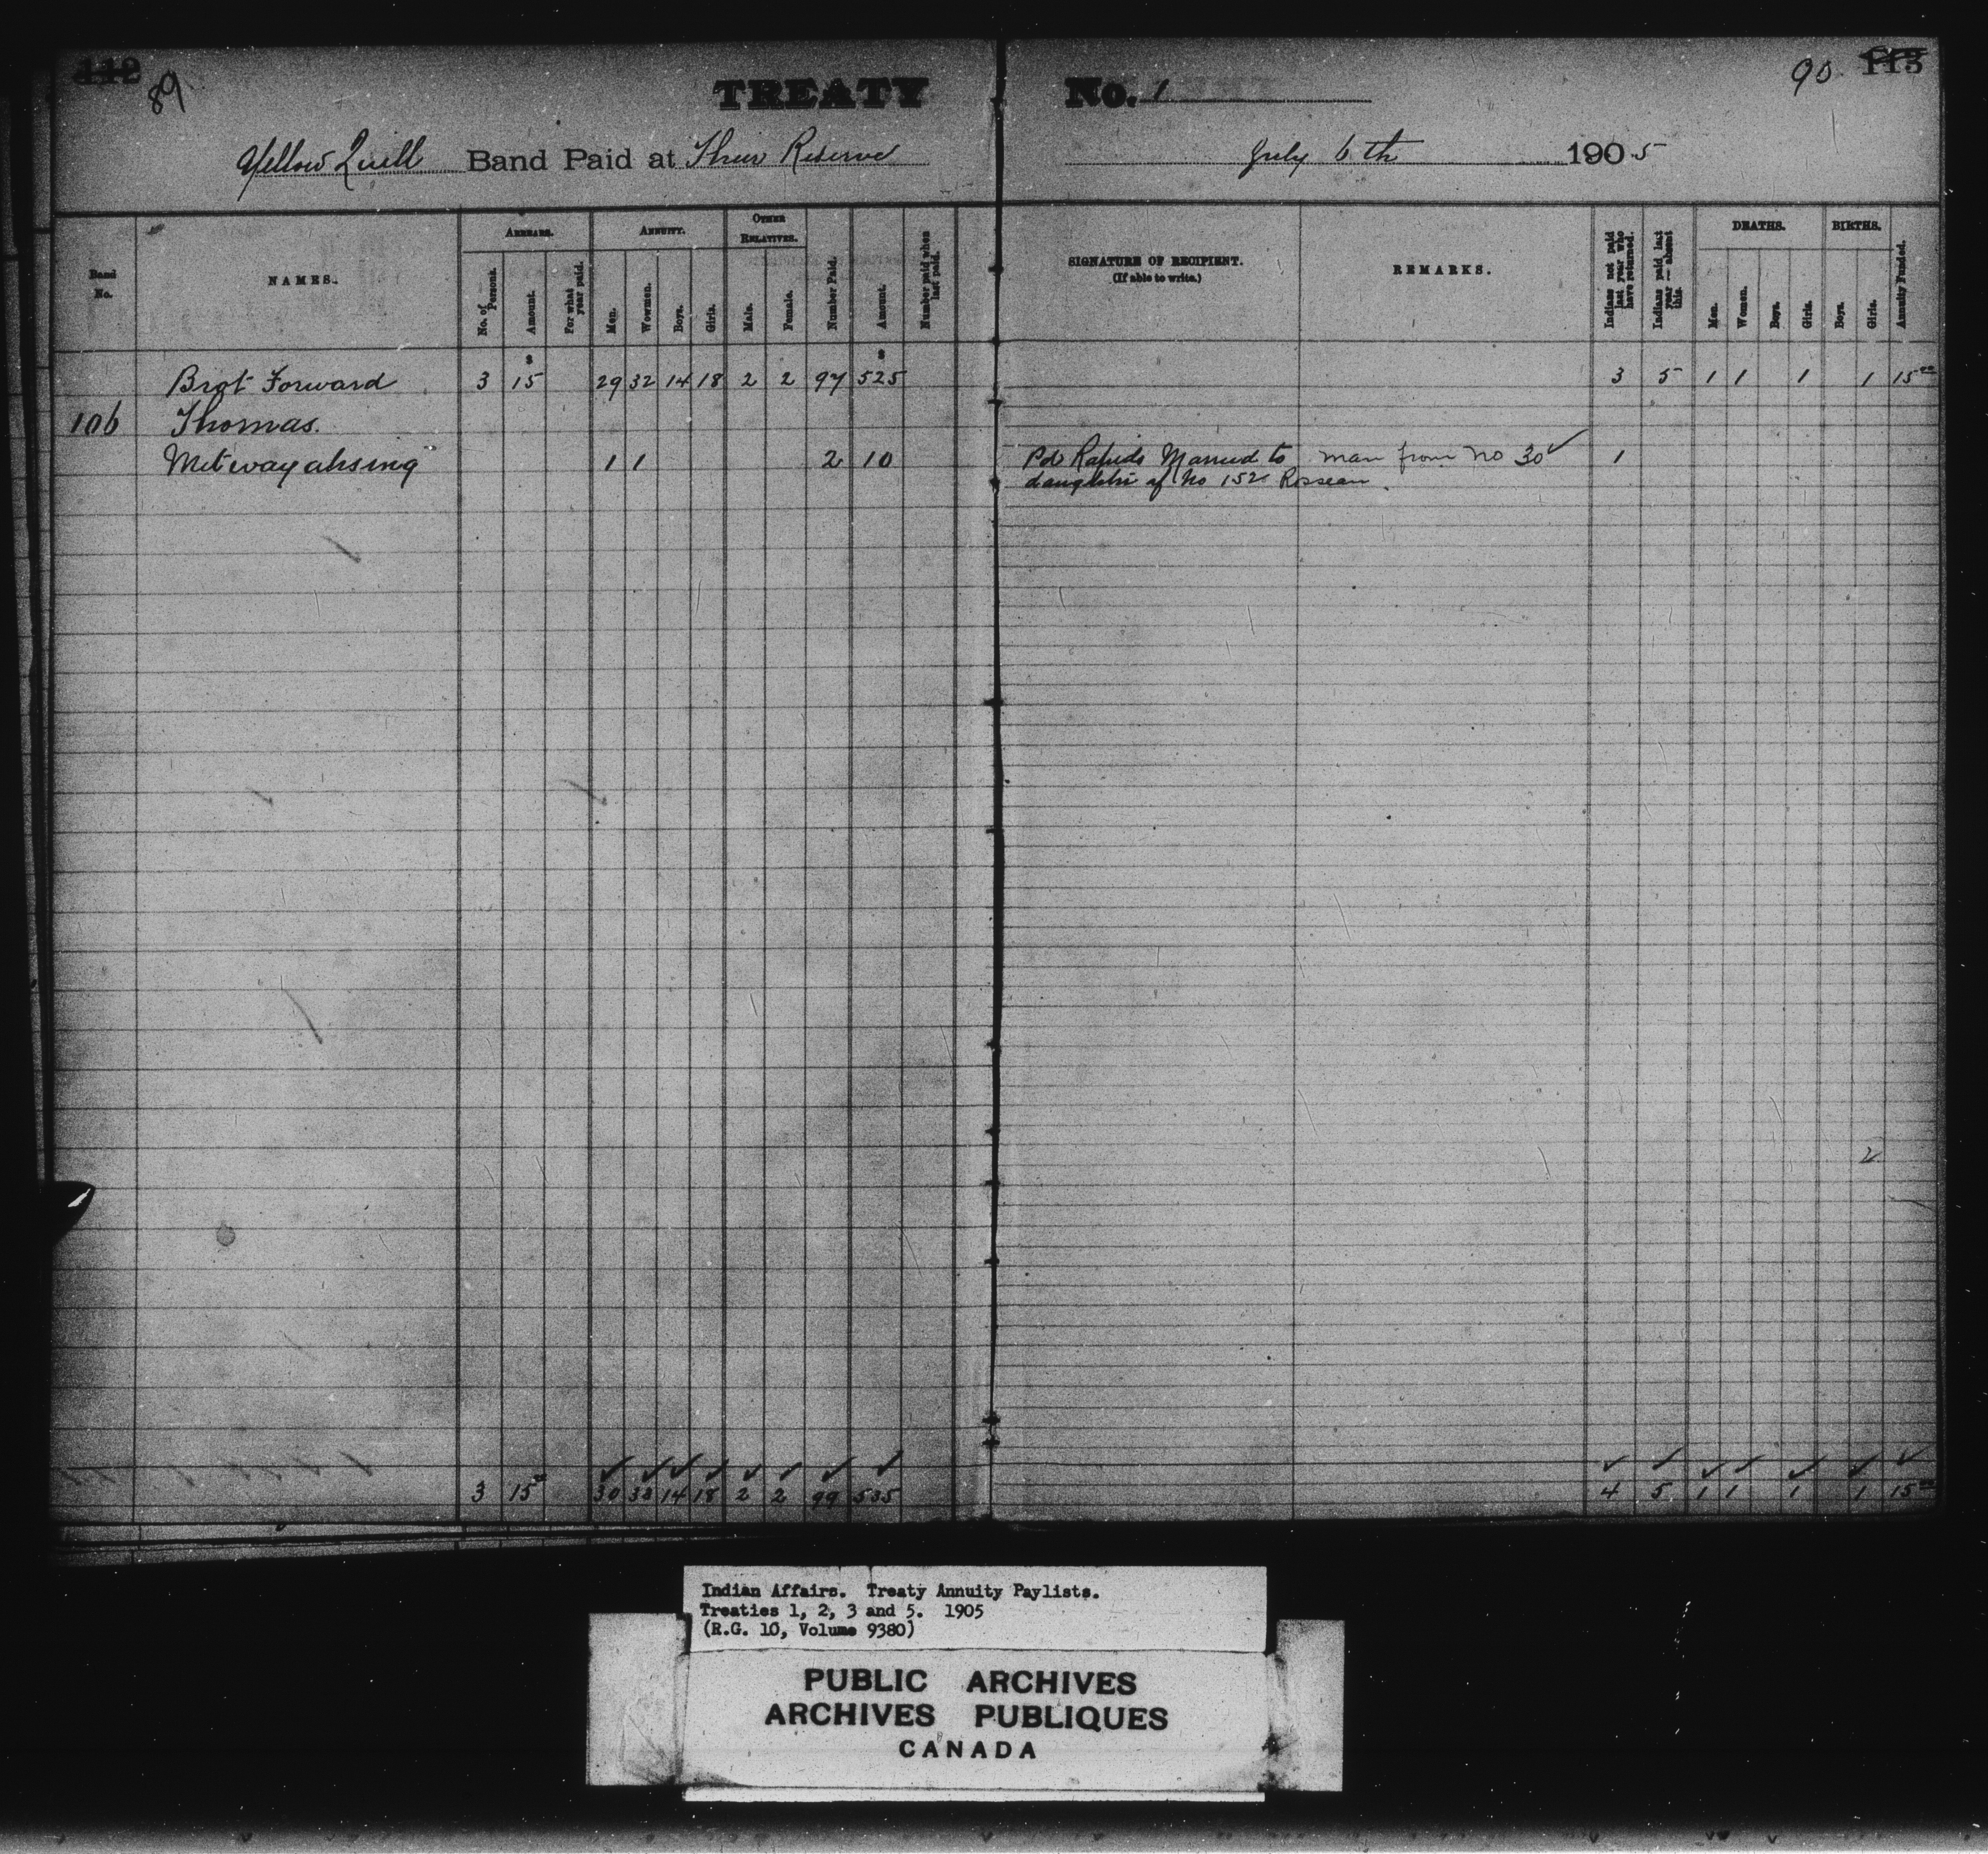 112 89 TREATY No. 1 90 113
Yellow Quill Band Paid at Their Reserve July 6th 1905
Band No.
NAMES.
ARREARS.
No. of Persons.
Amount.
For what year paid.
ANNUITY.
Men.
Wowmen.
Boys.
Girls.
OTHER RELATIVES.
Male.
Female.
Number Paid.
Amount.
Number paid when last paid.
SIGNATURE OF RECIPIENT.
(If able to write.)
REMARKS.
Indians not paid last year who have returned.
Indians paid last year — absent this.
DEATHS.
Men.
Women.
Boys.
Girls.
BIRTHS.
Boys.
Girls.
Annuity Funded.
$ $
Brot Forward 3 15 29 32 14 18 2 2 97 525 3 5 1 1 1 1 15 00
106 Thomas.
Metwayahsing 1 1 2 10 Pd Rapids Married to man from no 30 ✓ 1
daughter of No 152 Rosseau
2
✓ ✓ ✓ ✓ ✓ ✓ ✓ ✓ ✓ ✓ ✓ ✓ ✓ ✓ ✓
3 15 00 30 33 14 18 2 2 99 535 4 5 1 1 1 1 15 00
Indian Affairs. Treaty Annuity Paylists.
Treaties 1, 2, 3 and 5. 1905
(R.G. 10, Volume 9380)
PUBLIC ARCHIVES
ARCHIVES PUBLIQUES
CANADA